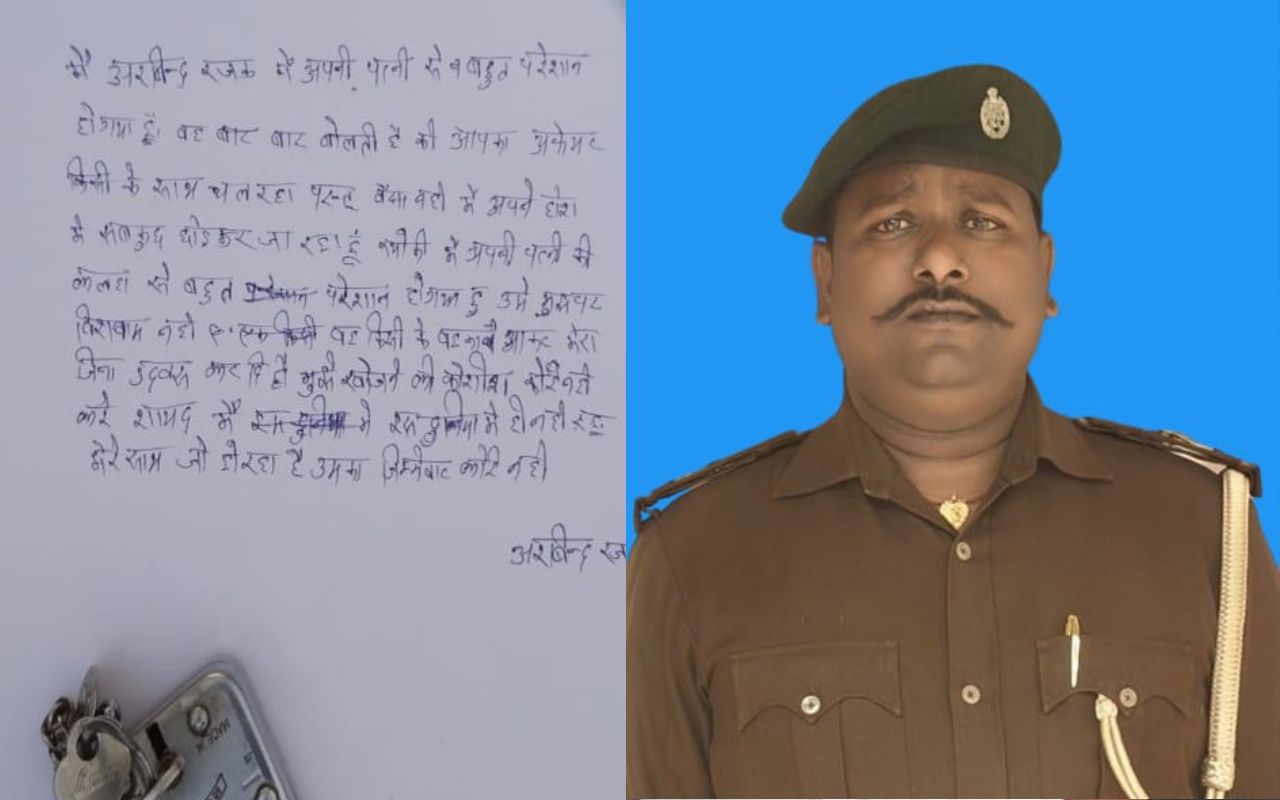 मै अरबीन्द रजक मै अपनी पत्नी से बहुत परेशान
होगया हूँ वह बार बार बोलती है की आपका अफेयर
किसी के साथ चल रहा परन्तु वैसा नही मै अपने होश
मे सबकुछ छोड़कर जा रहा हूँ क्योकी मै अपनी पत्नी की
कलह से बहुत परेशान होगया हु उसे मुझपर
विशवास नही वह किसी के बहकावे आकर मेरा
जिना कर दि है मुझे खोजने की कोशीश कोई नही
करे शायद मै मे इस दुनिया मे ही नही रहू
मेरे साथ जो हो रहा है उसका जिम्मेबार कोई नही
अरबीन्द रज